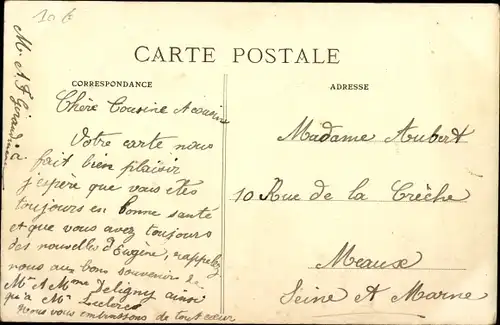 10 €
CARTE POSTALE
CORRESPONDANCE
ADRESSE
Chère Cousine et cousin
Votre carte nous
a fait bien plaisir
j'espère que vous êtes
toujours en bonne santé
et que vous avez toujours
des nouvelles d'Eugène, rappelez
nous aux bons souvenir de
Mr & Mme Deligny ainsi
qu'à Mr Leclerc
nous vous embrassons de tout cœur
M. A. F.
Madame Aubert
10 Rue de la Crèche
Meaux
Seine & Marne